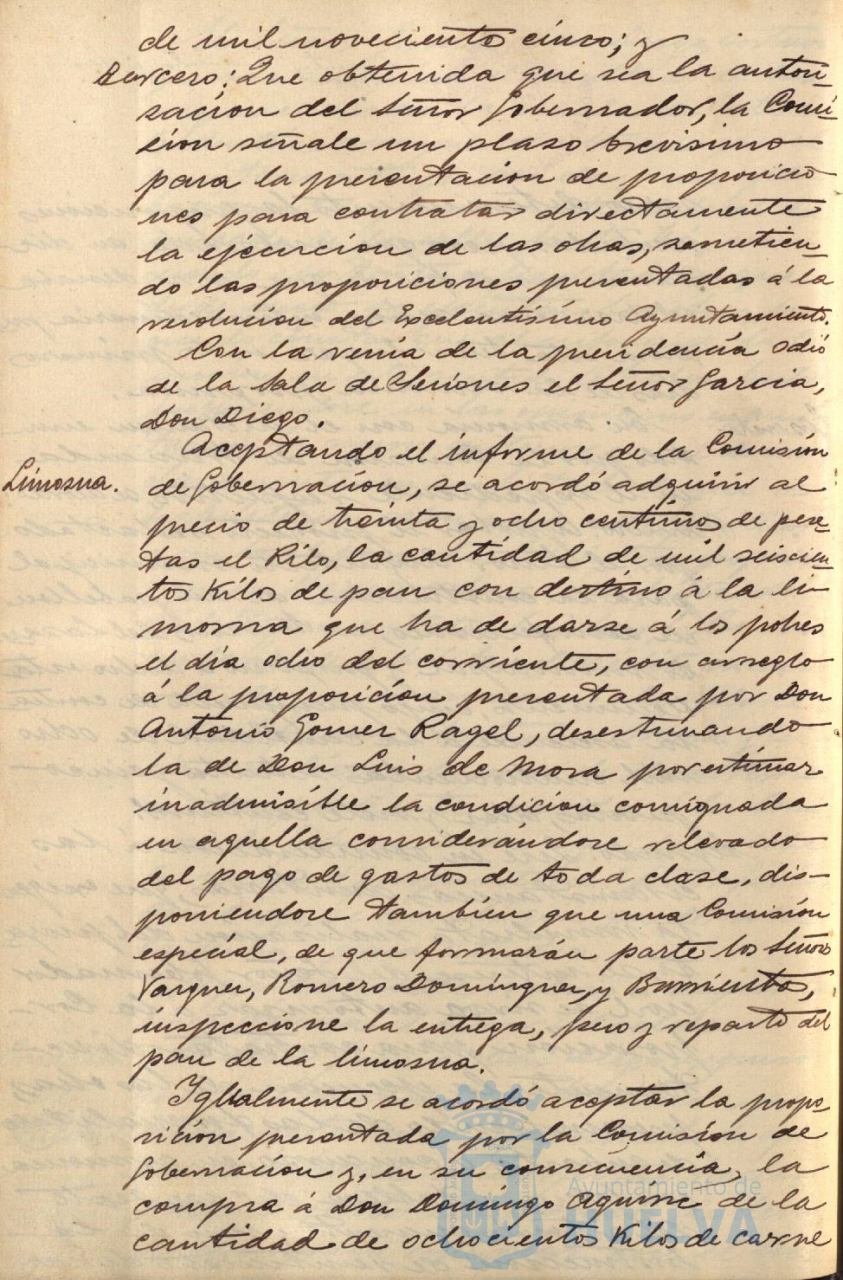 de mil novecientos cinco; y
Tercero: Que obtenida que sea la autori-
zacion del Señor Gobernador, la Comi-
sion señale un plazo brevisimo
para la presentacion de proposicio-
nes para contratar directamente
la ejecucion de las obras, sometien-
do las proposiciones presentadas á la
resolucion del Excelentísimo Ayuntamiento.
Con la venía de la presidencía salió
de la Sala de Sesiones el Señor Garcia,
Don Diego.
Aceptando el informe de la Comisión
Limosna.
de Gobernación, se acordó adquirir al
precio de treinta y ocho centimos de pese-
tas el Kilo, la cantidad de mil seiscien-
tos Kilos de pan con destino á la li-
mosna que ha de darse á los pobres
el día ocho del corriente, con arreglo
á la proposición presentada por Don
Antonio Gomez Ragel, desestimando
la de Don Luis de Mora por estimar
inadmisible la condicion consignada
en aquella considerándose relevado
del pago de gastos de toda clase, dis-
poniendose tambien que una Comisión
especial, de que formarán parte los Señores
Vazquez, Romero Domínguez, y Barrientos,
inspeccione la entrega, peso y reparto del
pan de la limosna.
Igualmente se acordó aceptar la propo-
sición presentada por la Comisión de
Gobernacion y, en su consecuencia, la
compra á Don Domingo Aguirre de la
cantidad de ochocientos Kilos de carne
Ayuntamiento de
HUELVA